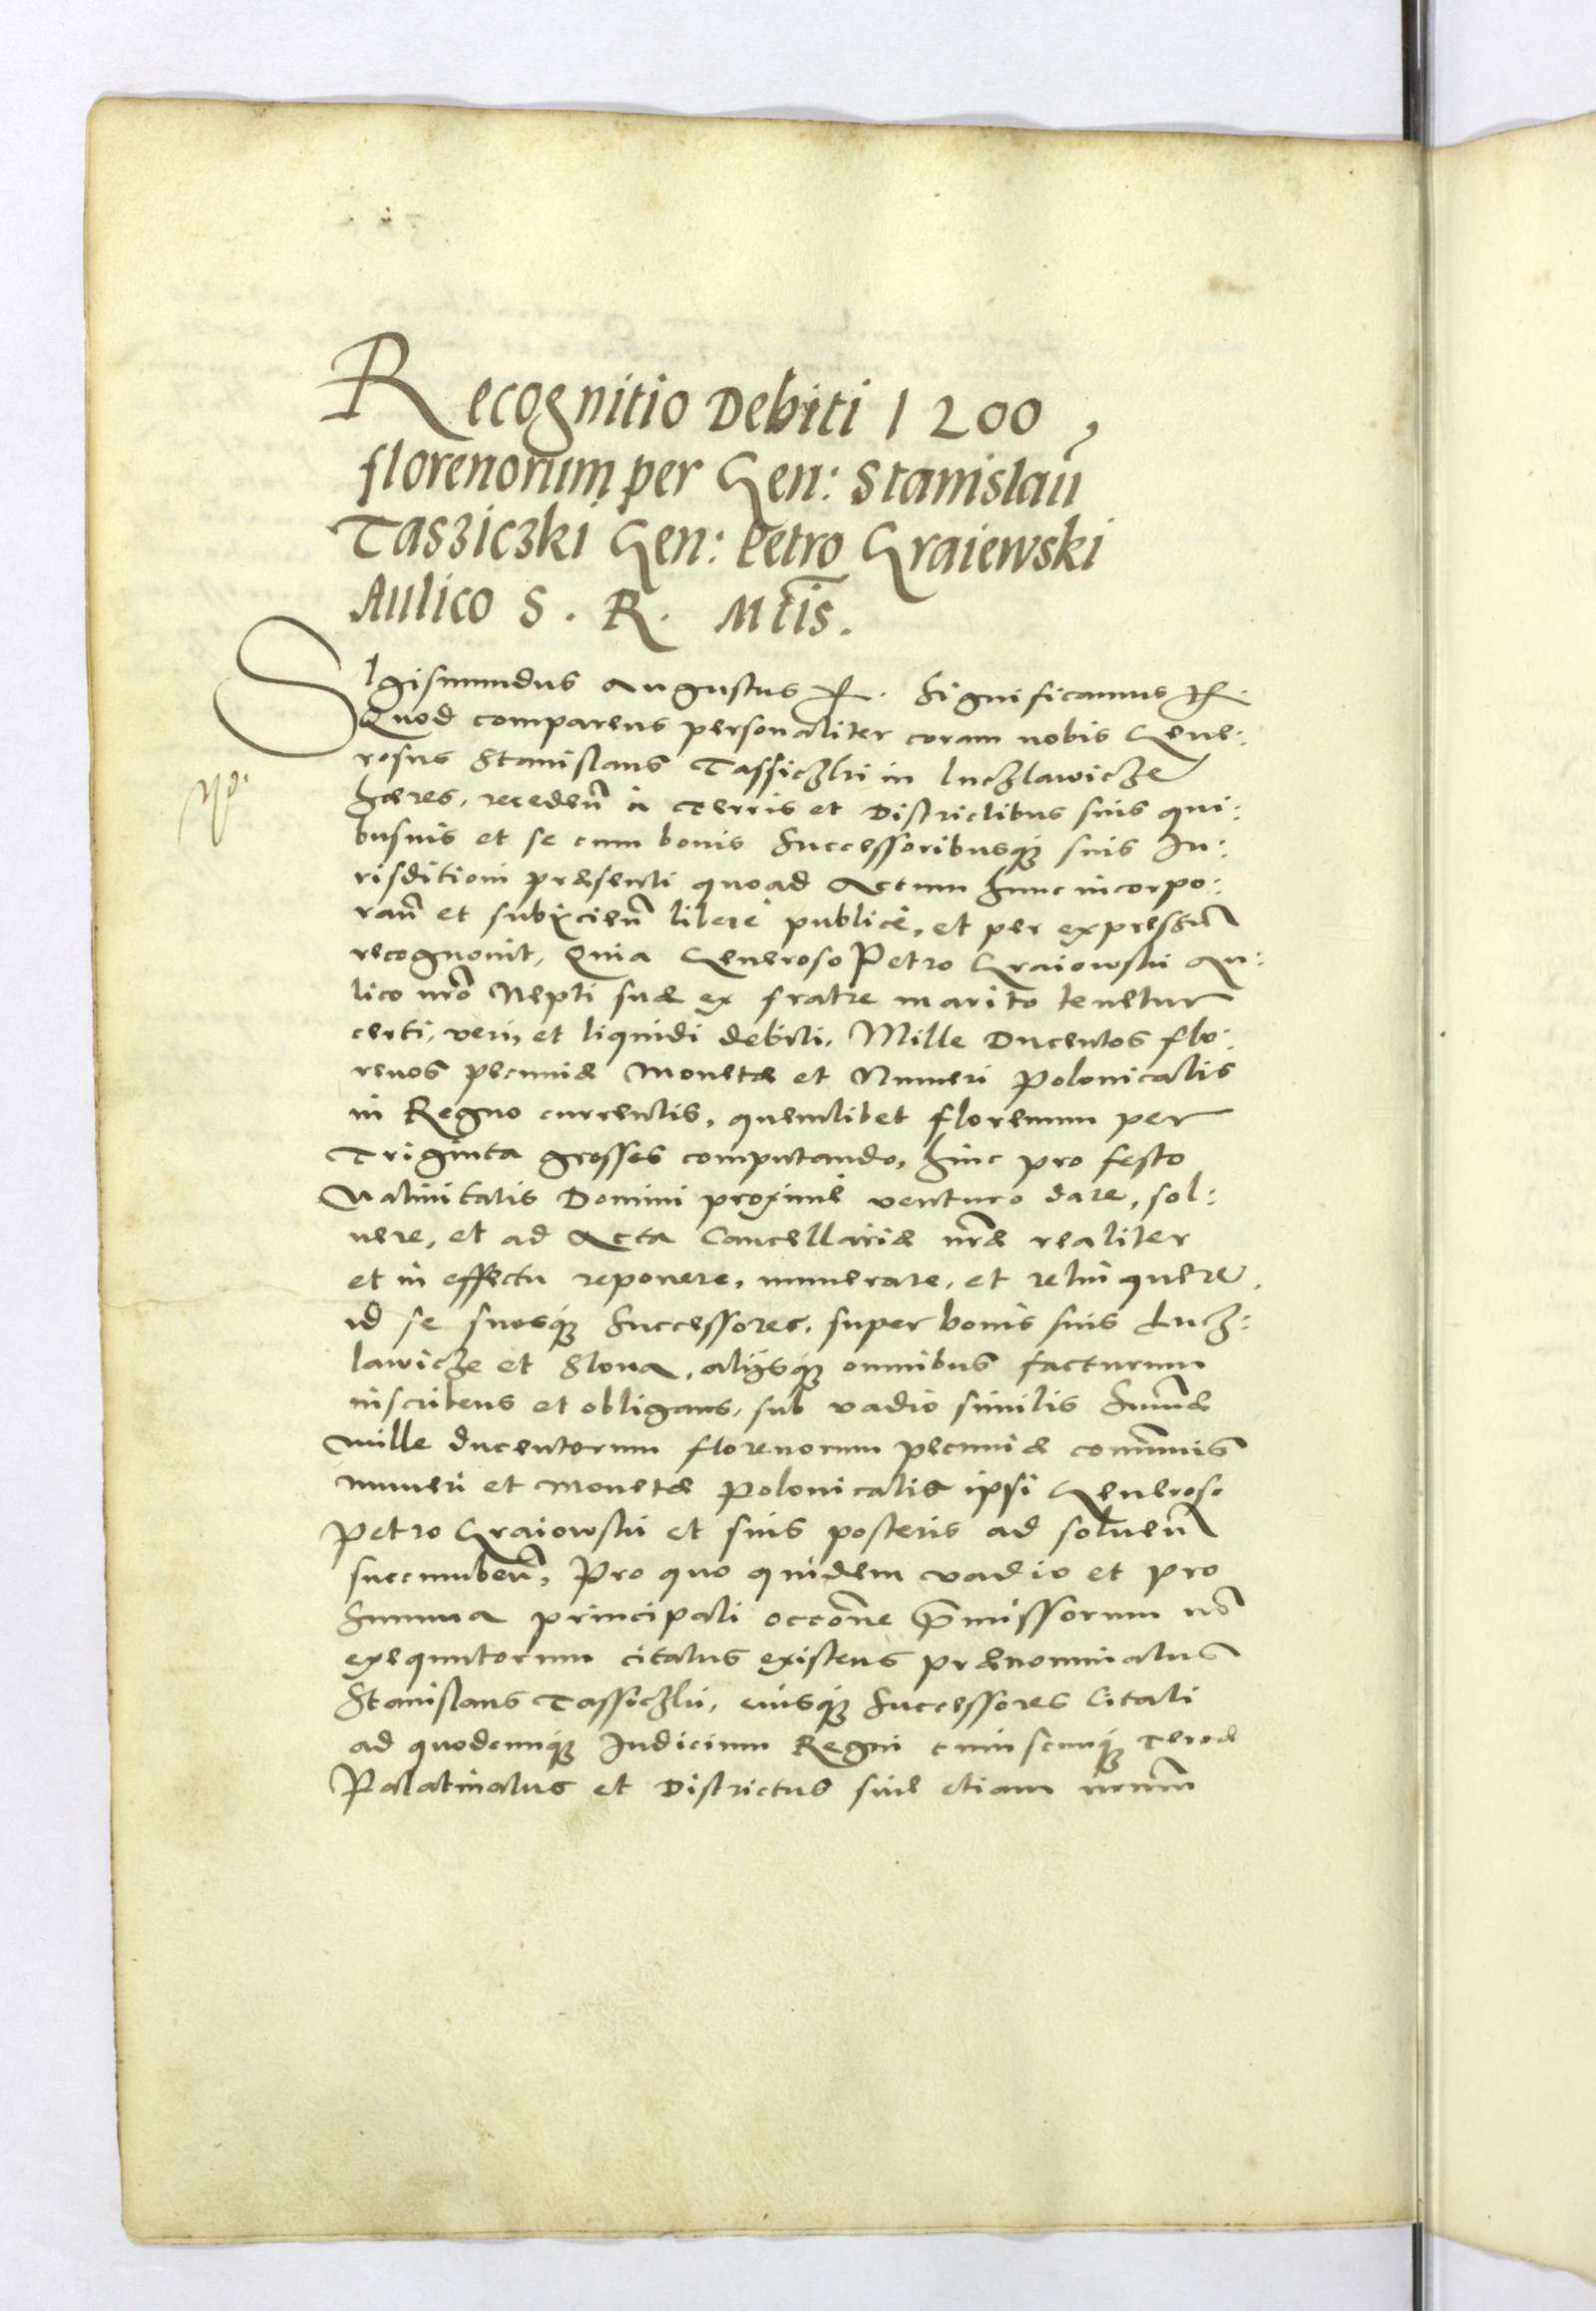 Recognitio Debiti 1200
florenorum per Gen: Stanislaũ
Tasziczki Gen: Petro Graiewski
Aulico S. R. Mtis.
SIgismundus Augustus Significamus
Quod comparens personaliter coram nobis Gene:
rosus Stanislaus Tassiczki in Luczlawicze
hæres, recedeñ à Terris et Districtibus suis qui:
busuis et se cum bonis Successoribusq; suis Iu:
risditioni præsenti quoad Actum hunc incorpo:
rañ et subijcieñ libere publicè, et per expressũ
recognouit, Quia Generoso Petro Graiowski Au:
lico nro Nepti suæ ex fratre marito tenetur
certi, veri, et liquidi debiti, Mille Ducentos flo:
renos pecuniæ Monetæ et Numeri Polonicalis
in Regno currentis, quemlibet florenum per
Triginta grossos computando, hinc pro festo
Natiuitatis Domini proximè venturo dare, sol:
uere, et ad Acta Cancellariæ nræ realiter
et in effectu reponere, numerare, et relinquere,
id se suosq; Successores, super bonis suis Lucz:
lawicze et Slona, alijsq; omnibus facturum
inscribens et obligans, sub vadio similis Sum̃æ
mille ducentorum florenorum pecuniæ com̃unis
numeri et Monetæ Polonicalis ipsi Generoso
Petro Graiowski et suis posteris ad solueñ
succumbeñ, Pro quo quidem vadio et pro
Summa principali occõne p̃missorum nõ
exequutorum citatus existens prænominatus
Stanislaus Tassiczki, eiusq; Successores Citati
ad quodcunq; Iudicium Regni cuiuscunq; Terræ
Palatinatus et Districtus siue etiam nrum̃